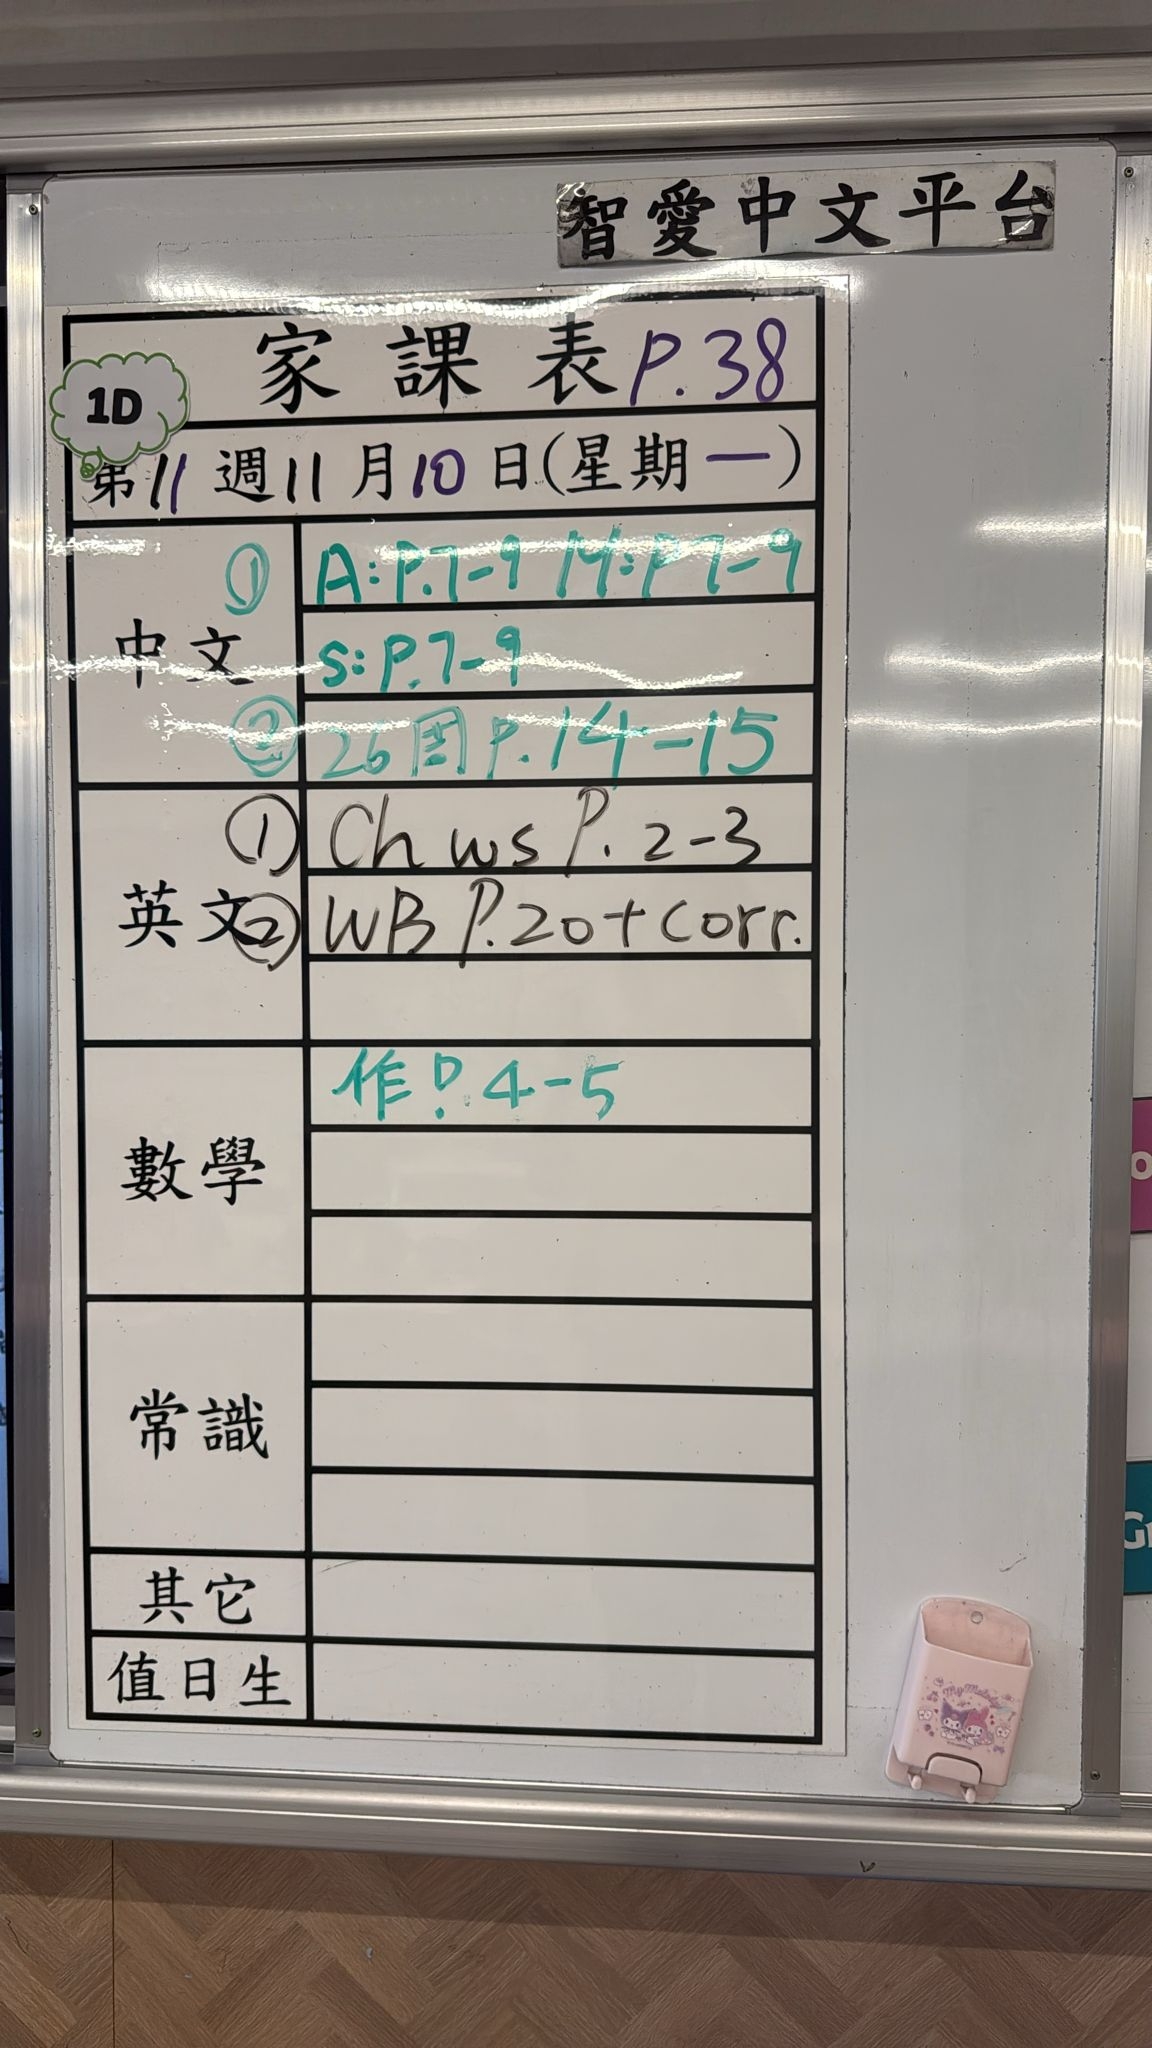 智愛中文平台
家課表 P.38
1D
第11週11月10日(星期一)
中文
① A:P.7-9 M:P7-9
S:P.7-9
② 26周P.14-15
英文
① Ch ws P.2-3
② WB P.20+corr.
數學
作P.4-5
常識
其它
值日生